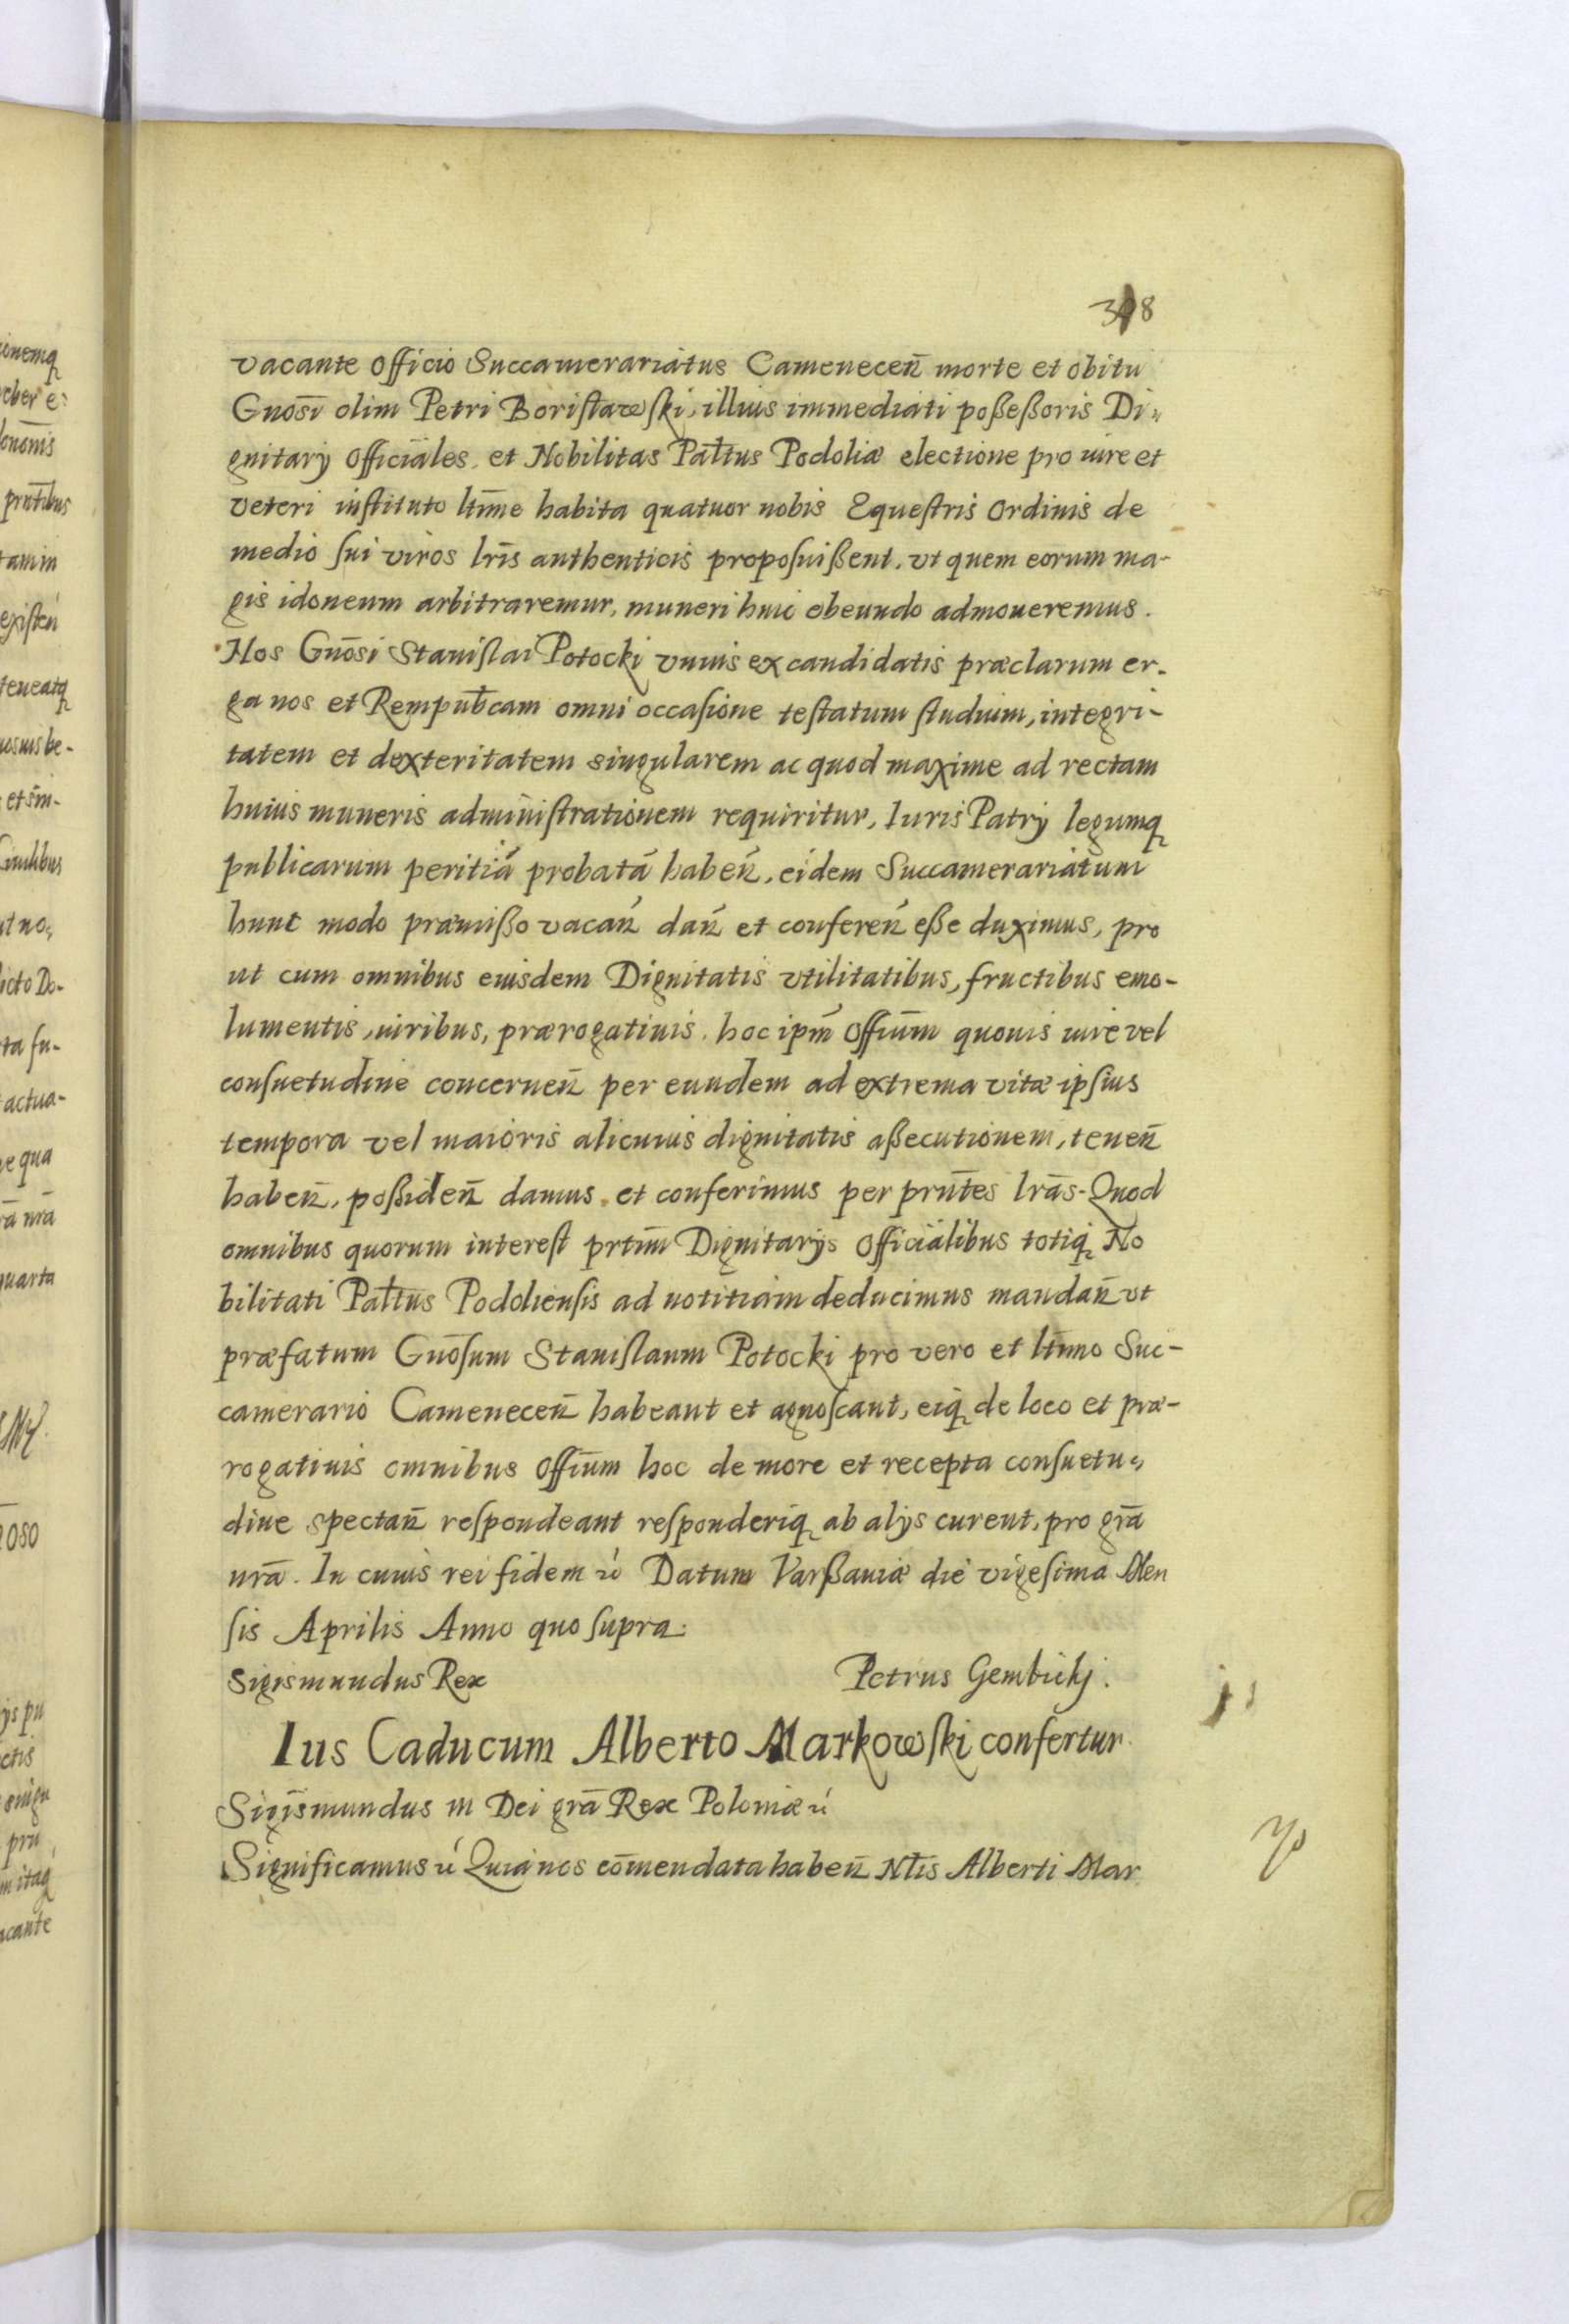 398
vacante officio Succamerariatus Camenecen̄ morte et obitu
Gnosī olim Petri Boriſtawſki, illius immediati poßeßoris Di„
gnitarÿ officiales. et Nobilitas Pałtus Podoliæ electione pro iure et
veteri inſtituto ltīme habita quatuor nobis Equeſtris Ordinis de
medio ſui viros lrīs authenticis propoſuißent. vt quem eorum ma-
gis idoneum arbitraremur, muneri huic obeundo admoueremus.
Nos Gnōsi Staniſlai Potocki vnius ex candidatis præclarum er-
ga nos et Rempub̄cam omni occaſione teſtatum ſtudium, integri-
tatem et dexteritatem singularem ac quod maxime ad rectam
huius muneris adminiſtrationem requiritur, Iuris Patrÿ legumq
publicarum peritiā probatā haben̄, eidem Succamerariatum
hunc modo præmißo vacan̄ dan̄ et conferen̄ eße duximus, pro
ut cum omnibus eiusdem Dignitatis vtilitatibus, fructibus emo-
lumentis, iuribus, prærogatiuis, hoc ipm̄ offiūm quouis iure vel
conſuetudine concernen̄ per eundem ad extrema vitæ ipſius
tempora vel maioris alicuius dignitatis aßecutionem, tenen̄
haben̄, poßiden̄ damus et conferimus per prn̄tes lrās. Quod
omnibus quorum intereſt prtīm Dignitarÿs officialibus totiq No
bilitati Pałtus Podolienſis ad notitiam deducimus mandan̄ vt
præfatum Gnōſum Staniſlaum Potocki pro vero et ltīmo Suc-
camerario Camenecen̄ habeant et agnoſcant, eiq de loco et præ-
rogatiuis omnibus offiūm hoc de more et recepta conſuetu„
dine spectan̄ reſpondeant reſponderiq ab alÿs curent, pro grā
nrā. In cuius rei fidem ɤ Datum Varßauiæ die vigeſima Men
ſis Aprilis Anno quo ſupra.
Sigismundus Rex Petrus Gembickj.
Ius Caducum Alberto Markowſki confertur
Sigismundus III Dei grā Rex Poloniæ ɤ
Significamus ɤ Quia nos cōmendata haben̄ Nłis Alberti Mar